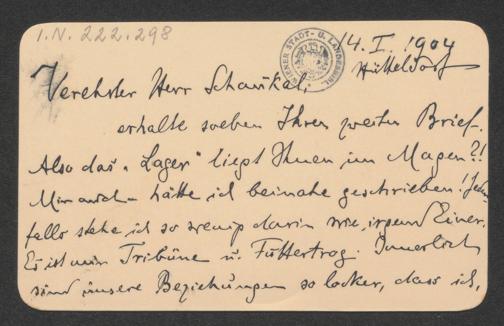 I.N. 222.298
WIENER STADT- U. LANDESBIBL.
14. I. 1904
Hütteldorf
Verehrter Herr Schaukal,
erhalte soeben Ihren zweiten Brief.
Also das „Lager" liegt Ihnen im Magen?!
Mir auch – hätte ich beinahe geschrieben! Jeden-
falls stehe ich so wenig darin wie irgend Einer.
Es ist mir Tribüne u. Futtertrog. Innerlich
sind unsere Beziehungen so locker, dass ich,